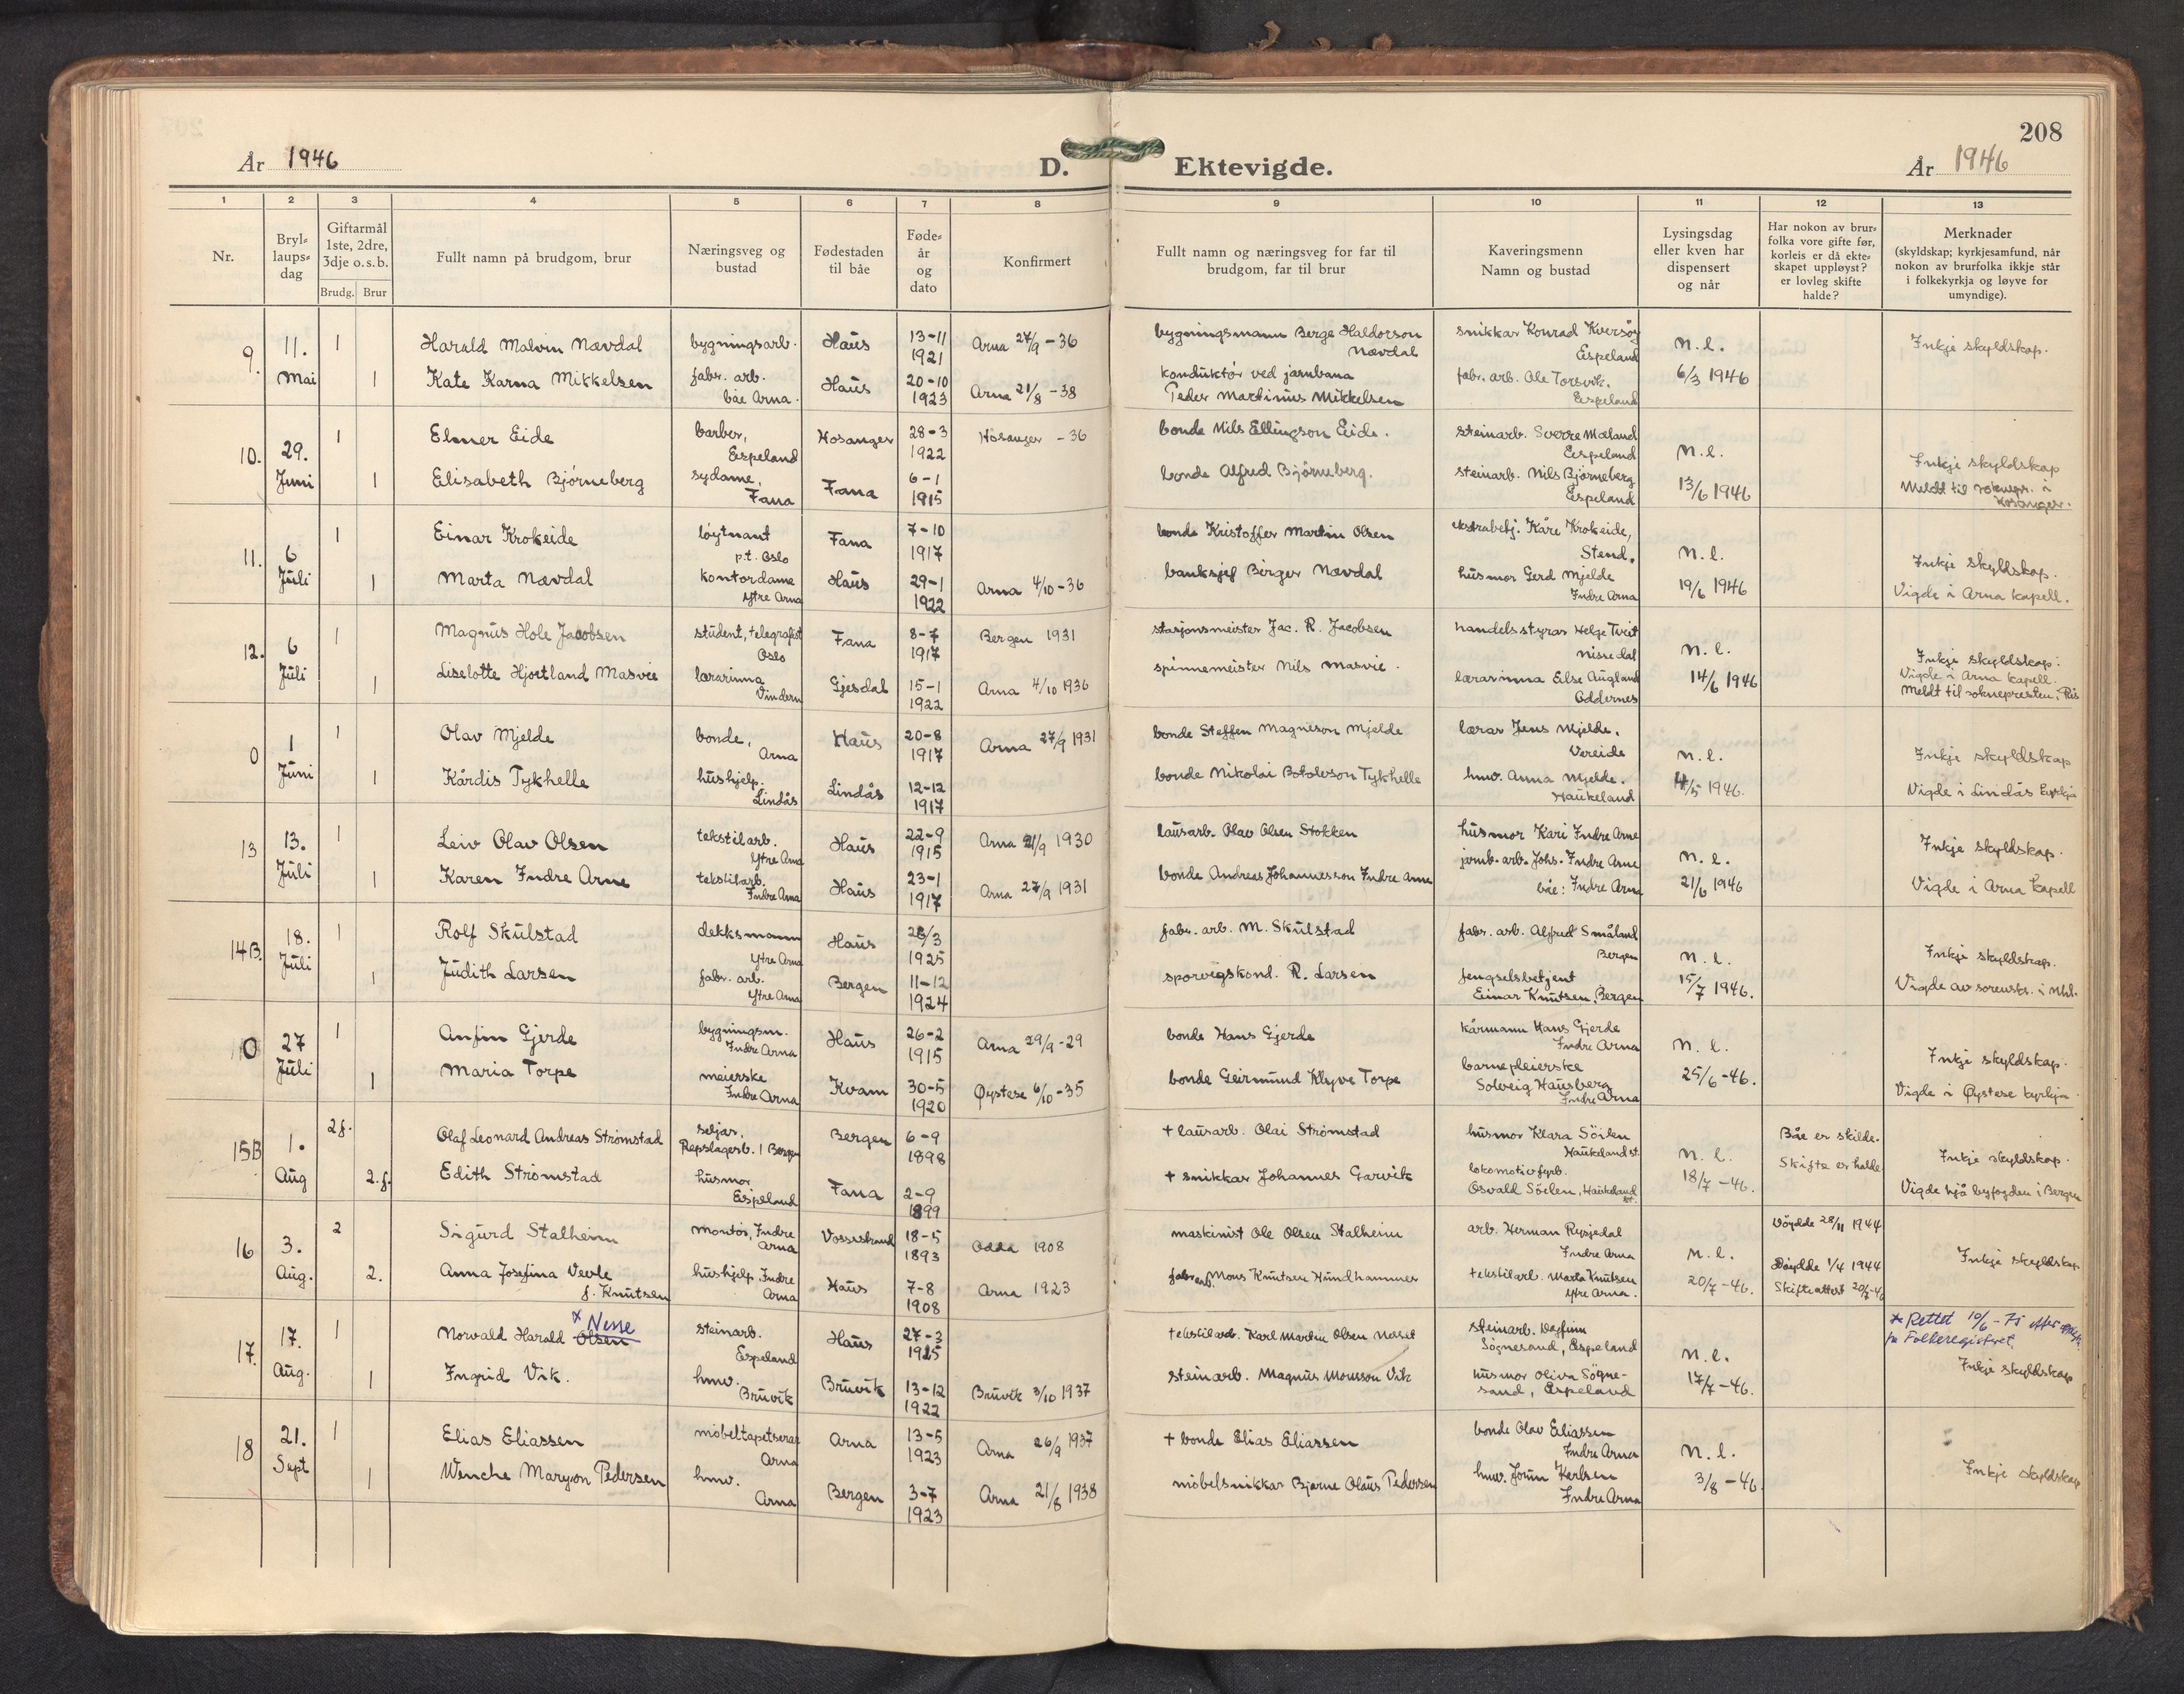 208
År 1946 D. Ektevigde. År 1946
1 2 3 4 5 6 7 8 9 10 11 12 13
Nr.
Bryl-
laups-
dag
Giftarmål
1ste, 2dre,
3dje o.s.b.
Brudg. Brur
Fullt namn på brudgom, brur
Næringsveg og
bustad
Fødestaden
til båe
Føde-
år
og
dato
Konfirmert
Fullt namn og næringsveg for far til
brudgom, far til brur
Kaveringsmenn
Namn og bustad
Lysingsdag
eller kven har
dispensert
og når
Har nokon av brur-
folka vore gifte før,
korleis er då ekte-
skapet uppløyst?
er lovleg skifte
halde?
Merknader
(skyldskap; kyrkjesamfund, når
nokon av brurfolka ikkje står
i folkekyrkja og løyve for
umyndige).
9. 11. Mai
1 Harald Malvin Nævdal bygningsarb. Haus 13-11 1921 Arna 27/9-36
bygningsmann Berge Haldorson Nævdal
snikkar Konrad Kversøy Espeland
n.l.
Inkje skyldskap.
1 Kate Karna Mikkelsen fabr. arb. båe Arna. Haus 20-10 1923 Arna 21/8-38
konduktør ved jarnbana Peder Martinus Mikkelsen
fabr. arb. Ole Torsvik. Espeland
6/3 1946
10. 29. Juni
1 Elmer Eide barber, Espeland Hosanger 28-3 1922 Hosanger -36
bonde Nils Ellingson Eide.
steinarb. Sverre Mæland Espeland
n.l.
Inkje skyldskap
1 Elisabeth Bjørneberg sydame, Fana Fana 6-1 1915
bonde Alfred Bjørneberg.
steinarb. Nils Bjørneberg Espeland
13/6 1946
Meldt til soknepr. i Hosanger.
11. 6 Juli
1 Einar Krokeide løytnant p.t. Oslo Fana 7-10 1917
bonde Kristoffer Martin Olsen
ekstrabetj. Kåre Krokeide, Stend.
n.l.
Inkje skyldskap.
1 Marta Nævdal kontordame Ytre Arna Haus 29-1 1922 Arna 4/10-36
banksjef Birger Nævdal
husmor Gerd Mjelde Indre Arna
19/6 1946
Vigde i Arna kapell.
12. 6 Juli
1 Magnus Hole Jacobsen student, telegrafist Oslo Fana 8-7 1917 Bergen 1931
stasjonsmeister Jac. R. Jacobsen
handelsstyrar Helge Tveit Nisredal
n.l.
Inkje skyldskap.
1 Liselotte Hjortland Masvie lærarinna Vindern Gjesdal 15-1 1922 Arna 4/10 1936
spinnemeister Nils Masvie.
lærarinna Else Augland Oddernes
14/6 1946
Vigde i Arna kapell.
Meldt til soknepresten i Ris
0 1 Juni
1 Olav Mjelde bonde, Arna Haus 20-8 1917 Arna 27/9 1931
bonde Steffen Magneson Mjelde
lærar Jens Mjelde. Vereide
n.l.
Inkje skyldskap
1 Kårdis Tykhelle hushjelp. Lindås Lindås 12-12 1917
bonde Nikolai Botolvson Tykhelle
hmv. Anna Mjelde. Haukeland
4/5 1946.
Vigde i Lindås kyrkja
13 13. Juli
1 Leiv Olav Olsen tekstilarb. Ytre Arna Haus 22-9 1915 Arna 21/9 1930
lausarb. Olav Olsen Stokken
husmor Kari Indre Arne
n.l.
Inkje skyldskap.
1 Karen Indre Arne tekstilarb. Indre Arna Haus 23-1 1917 Arna 27/9 1931
bonde Andreas Johannesson Indre Arne
jarnb. arb. Johs. Indre Arne båe: Indre Arna
21/6 1946
Vigde i Arna kapell
14B. 18. Juli
1 Rolf Skulstad dekksmann Ytre Arna Haus 28/3 1925
fabr. arb. M. Skulstad
fabr. arb. Alfred Småland Bergen
n.l.
Inkje skyldskap.
1 Judith Larsen fabr. arb. Ytre Arna Bergen 11-12 1924
sporvegskond. R. Larsen
fengselsbetjent Einar Knutsen, Bergen
15/7 1946.
Vigde av sorenskr. i Nhl.
0 27 Juli
1 Anfinn Gjerde bygningsm. Indre Arna Haus 26-2 1915 Arna 29/9-29
bonde Hans Gjerde
kårmann Hans Gjerde Indre Arna
n.l.
Inkje skyldskap.
1 Maria Torpe meierske Indre Arna Kvam 30-5 1920 Øystese 6/10-35
bonde Geirmund Klyve Torpe
barnepleierske Solveig Hausberg Indre Arna
25/6-46.
Vigde i Øystese kyrkja.
15B 1. Aug
2g. Olaf Leonard Andreas Strømstad seljar, Repslagerb. 1 Bergen Bergen 6-9 1898
+ lausarb. Olai Strømstad
husmor Klara Söilen Haukeland st.
n.l.
Båe er skilde.
Inkje skyldskap.
2.g. Edith Strømstad husmor Espeland Fana 2-9 1899
+ snikkar Johannes Garvik
lokomotivfyrb. Osvald Söilen, Haukeland st.
18/7-46.
Skifte er halde
Vigde hjå byfogden i Bergen
16 3. Aug.
2 Sigurd Stalheim montør, Indre Arna Vossestrand 18-5 1893 Odda 1908
maskinist Ole Olsen Stalheim
arb. Herman Rysjedal Indre Arna
n.l.
Döydde 28/11 1944
Inkje skyldskap
2. Anna Josefina Vevle f. Knutsen hushjelp, Indre Arna Haus 7-8 1908 Arna 1923
fabr. arb. Mons Knutsen Hundhammer
tekstilarb. Marta Knutsen Ytre Arna.
20/7-46.
Döydde 1/4 1944
Skifteattest 20/7-46
17. 17. Aug.
1 Norvald Harald Olsen x Nesse steinarb. Espeland Haus 27-3 1915
tekstilarb. Karl Martin Olsen
steinarb. Dagfinn Sögnesand, Espeland
n.l.
x Rettet 10/6-75 etter
fra Folkeregisteret.
Inkje skyldskap
1 Ingrid Vik. hmv. Bruvik Bruvik 13-12 1922 Bruvik 3/10 1937
steinarb. Magnus Monsson Vik
husmor Oliva Sögne-
sand, Espeland
17/7-46.
18 21. Sept
1 Elias Eliassen møbeltapetserar Arna Arna 13-5 1923 Arna 26/9 1937
+ bonde Elias Eliassen
bonde Olav Eliassen Indre Arna
n.l.
Inkje skyldskap
1 Wenche Maryon Pedersen hmv. Arna Bergen 3-7 1923 Arna 21/8 1938
møbelsnikkar Bjarne Olaus Pedersen
hmv. Jorun Indre Arna
3/8-46.